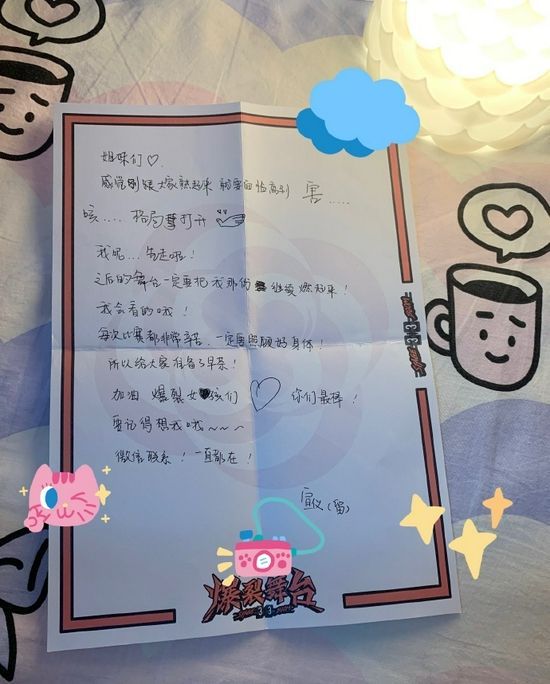 姐妹们♡
感觉刚跟大家熟起来 就要面临离别 害.....
咳.... 格局打开
我呢... 先走啦!
之后的舞台一定要把我那份继续燃起来!
我会看的哦!
每次比赛都非常辛苦 一定要照顾好身体!
所以给大家准备了早茶!
加油 爆裂女孩们♡ 你们最棒!
要记得想我哦~~~
微信联系! 一直都在!
宣仪(留)
爆裂舞台